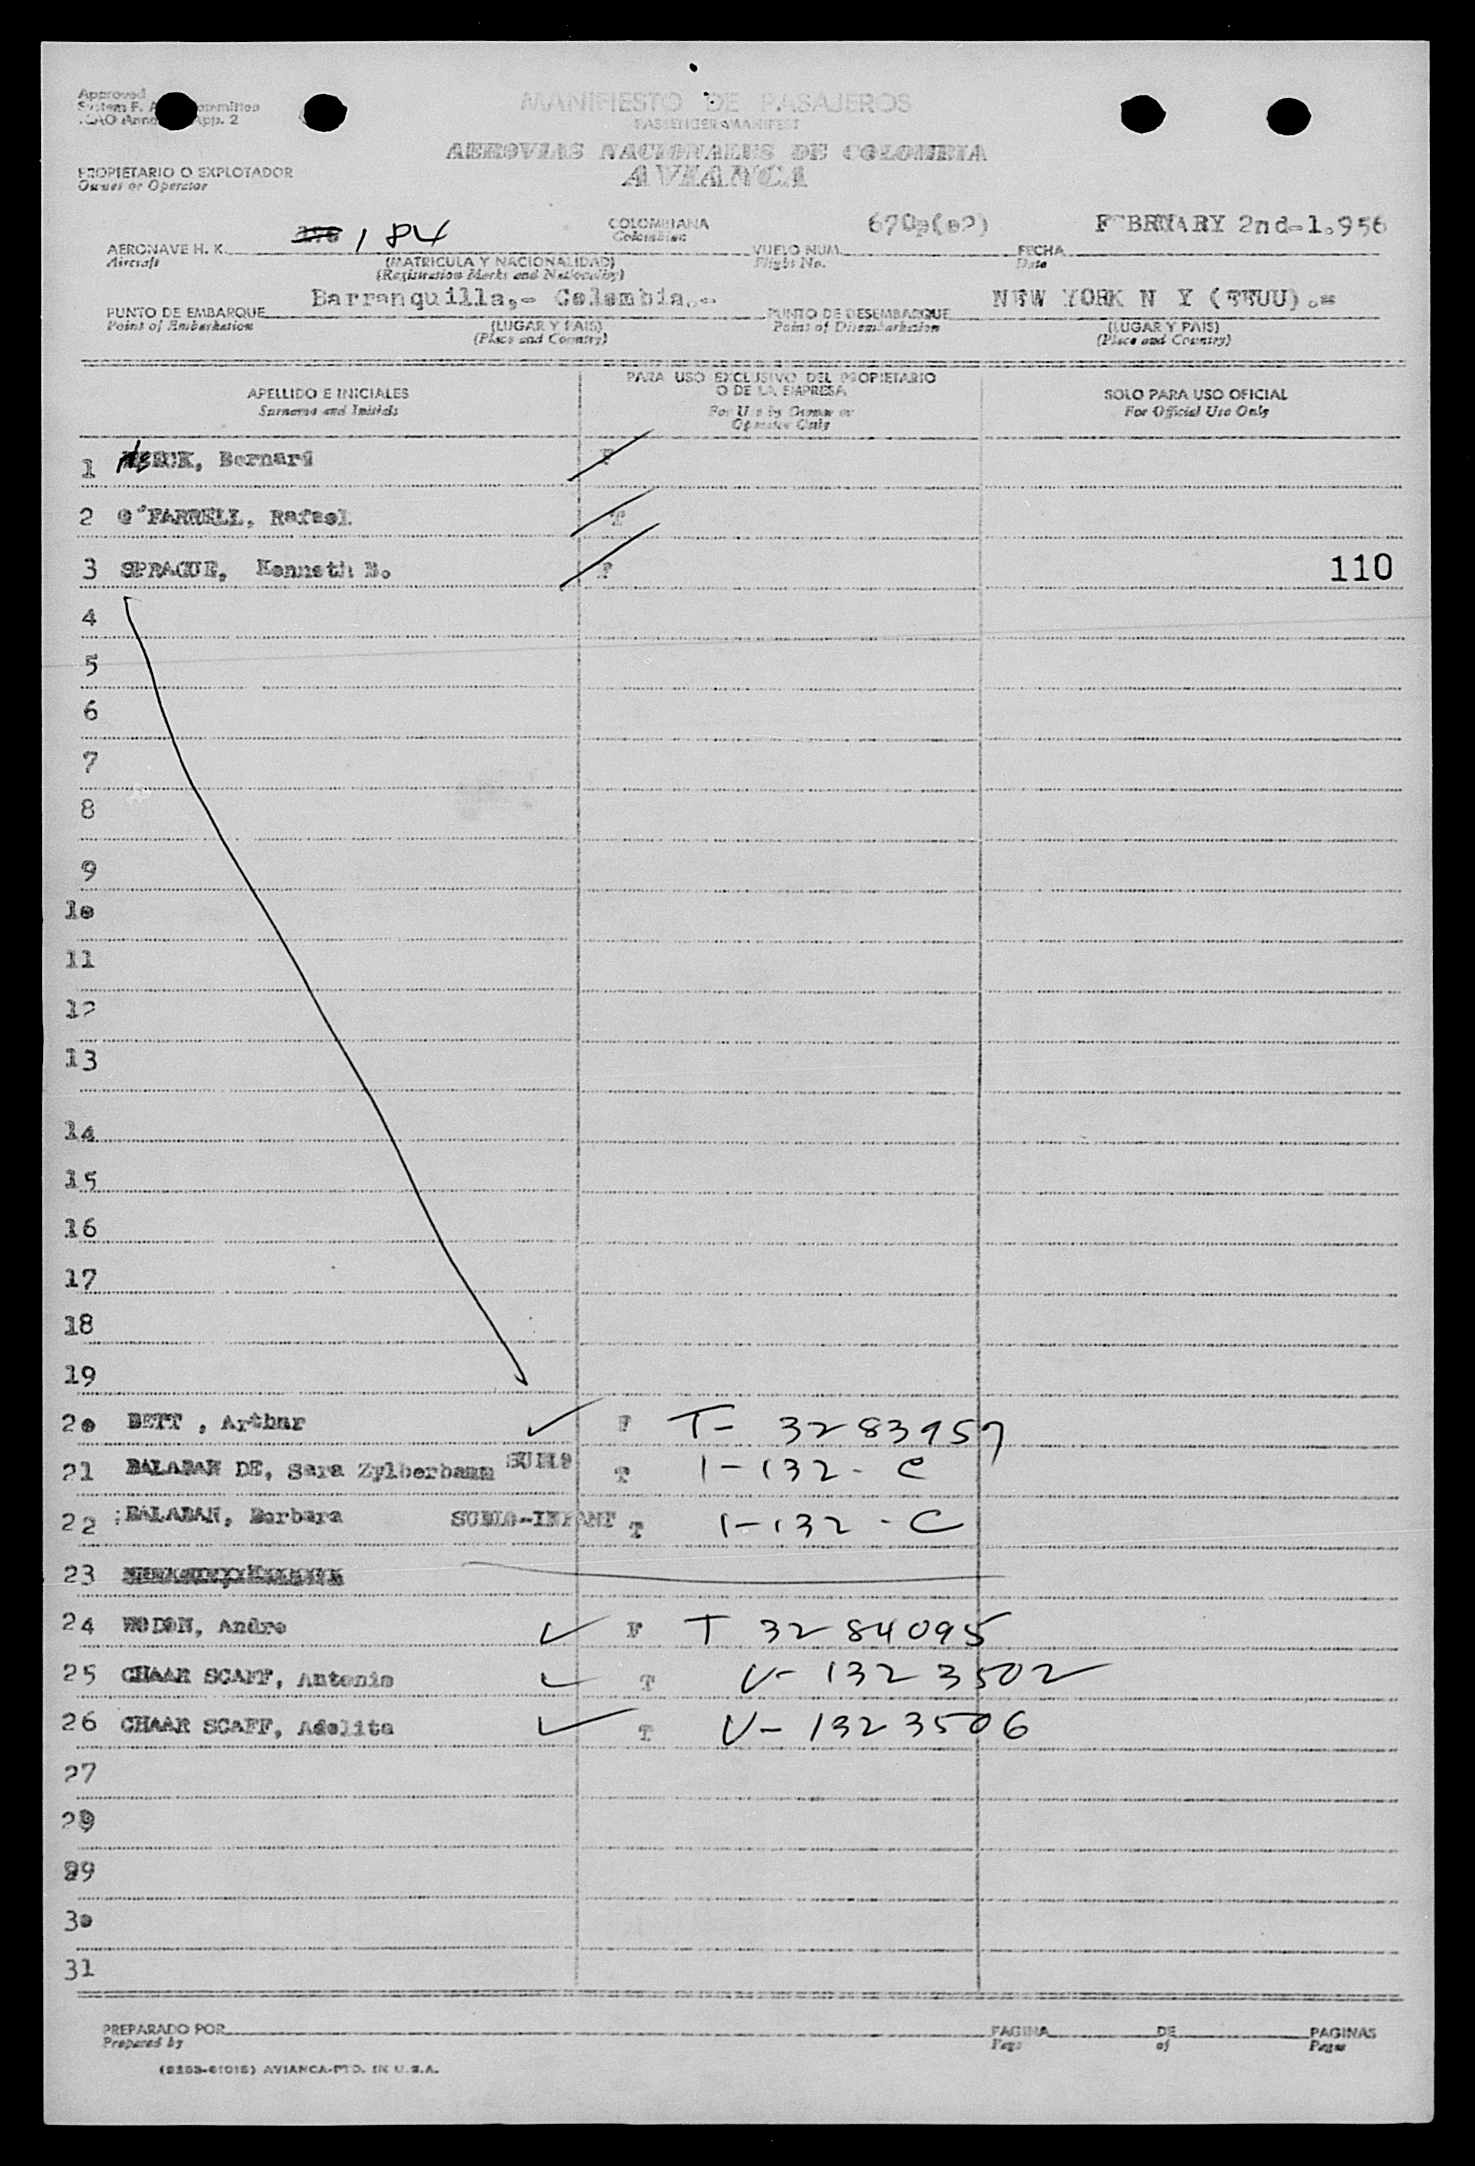 Approved
MANIFIESTO DE PASAJEROS
PASSENGER MANIFEST
AEROVIAS NACIONALES DE COLOMBIA
AVIANCA
PROPIETARIO O EXPLOTADOR
Owner or Operator
AERONAVE H. K. 184
Aircraft
(MATRICULA Y NACIONALIDAD)
(Registration Marks and Nationality)
COLOMBIANA
Colombian
VUELO NUM.
Flight No.
FECHA FEBRUARY 2nd-1.956
Date
PUNTO DE EMBARQUE Barranquilla,- Colombia.-
Point of Embarkation
(LUGAR Y PAIS)
(Place and Country)
PUNTO DE DESEMBARQUE NEW YORK N Y (EEUU).=
Point of Disembarkation
(LUGAR Y PAIS)
(Place and Country)
APELLIDO E INICIALES
Surname and Initials
PARA USO EXCLUSIVO DEL PROPIETARIO
O DE LA EMPRESA
For Use by Owner or
Operator Only
SOLO PARA USO OFICIAL
For Official Use Only
1 Bernard
2 O'FARRELL, Rafael T
3 SPRAGUE, Kenneth B. 110
4
5
6
7
8
9
10
11
12
13
14
15
16
17
18
19
20 BETT , Arthur F T- 3283957
21 BALABAN DE, Sara Zylberbaum T 1-132- C
22 BALABAN, Barbara T 1-132 - C
23
24 WODON, Andre F T 3284095
25 CHAAR SCAFF, Antonio T V- 1323502
26 CHAAR SCAFF, Adelita T V- 1323506
27
29
30
31
PREPARADO POR
Prepared by
PAGINA
Page
DE
of
PAGINAS
Pages
AVIANCA-PTD. IN U.S.A.